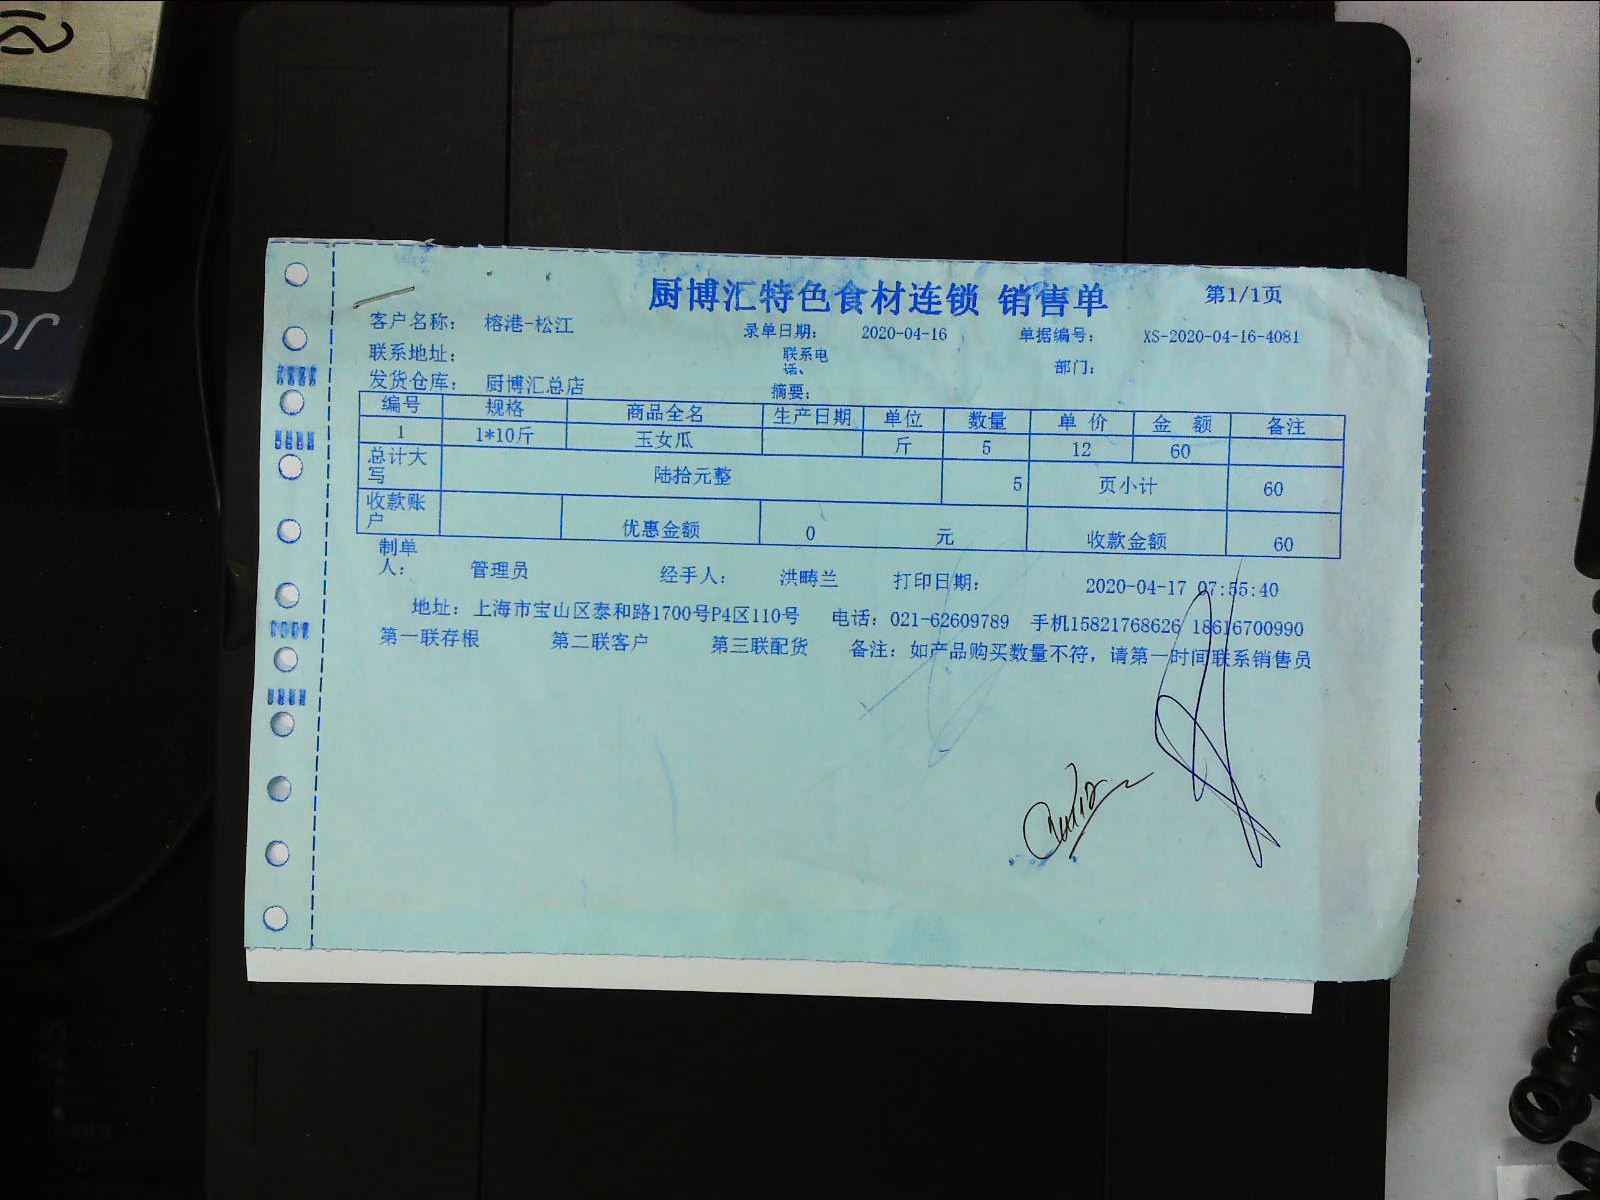 厨博汇特色食材连锁 销售单 第1/1页
客户名称： 榕港-松江 录单日期： 2020-04-16 单据编号： XS-2020-04-16-4081
联系地址： 联系电话、 部门：
发货仓库： 厨博汇总店 摘要：
编号 规格 商品全名 生产日期 单位 数量 单价 金额 备注
1 1*10斤 玉女瓜 斤 5 12 60
总计大写 陆拾元整 5 页小计 60
收款账户 优惠金额 0 元 收款金额 60
制单人： 管理员 经手人： 洪畴兰 打印日期： 2020-04-17 07:55:40
地址：上海市宝山区泰和路1700号P4区110号 电话：021-62609789 手机15821768626 18616700990
第一联存根 第二联客户 第三联配货 备注：如产品购买数量不符，请第一时间联系销售员